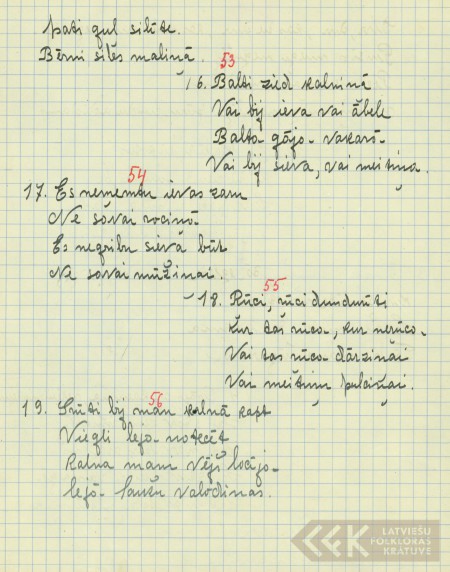 pati gul silīte.
Bērni silēs maliņā.
53
16. Balti zied kalniņā
Vai bij ieva vai ābele
Balta gāja vakarā
Vai bij sieva, vai meitiņa.
54
17. Es neņemtu ievas zaru
Ne savai rociņā
Es negribu sievā būt
Ne savai mūžiņai.
55
18. Rūci, rūci dundurīti
Kur tas rūca, kur nerūca.
Vai tas rūca dārziņai
Vai meitiņu pulciņai.
56
19. Grūti bij man kalnā kāpt
Viegli lejā notecēt
Kalnā mani vējš locīja
lejā ļaužu valodiņas.
LATVIEŠU
FOLKLORAS
KRĀTUVE